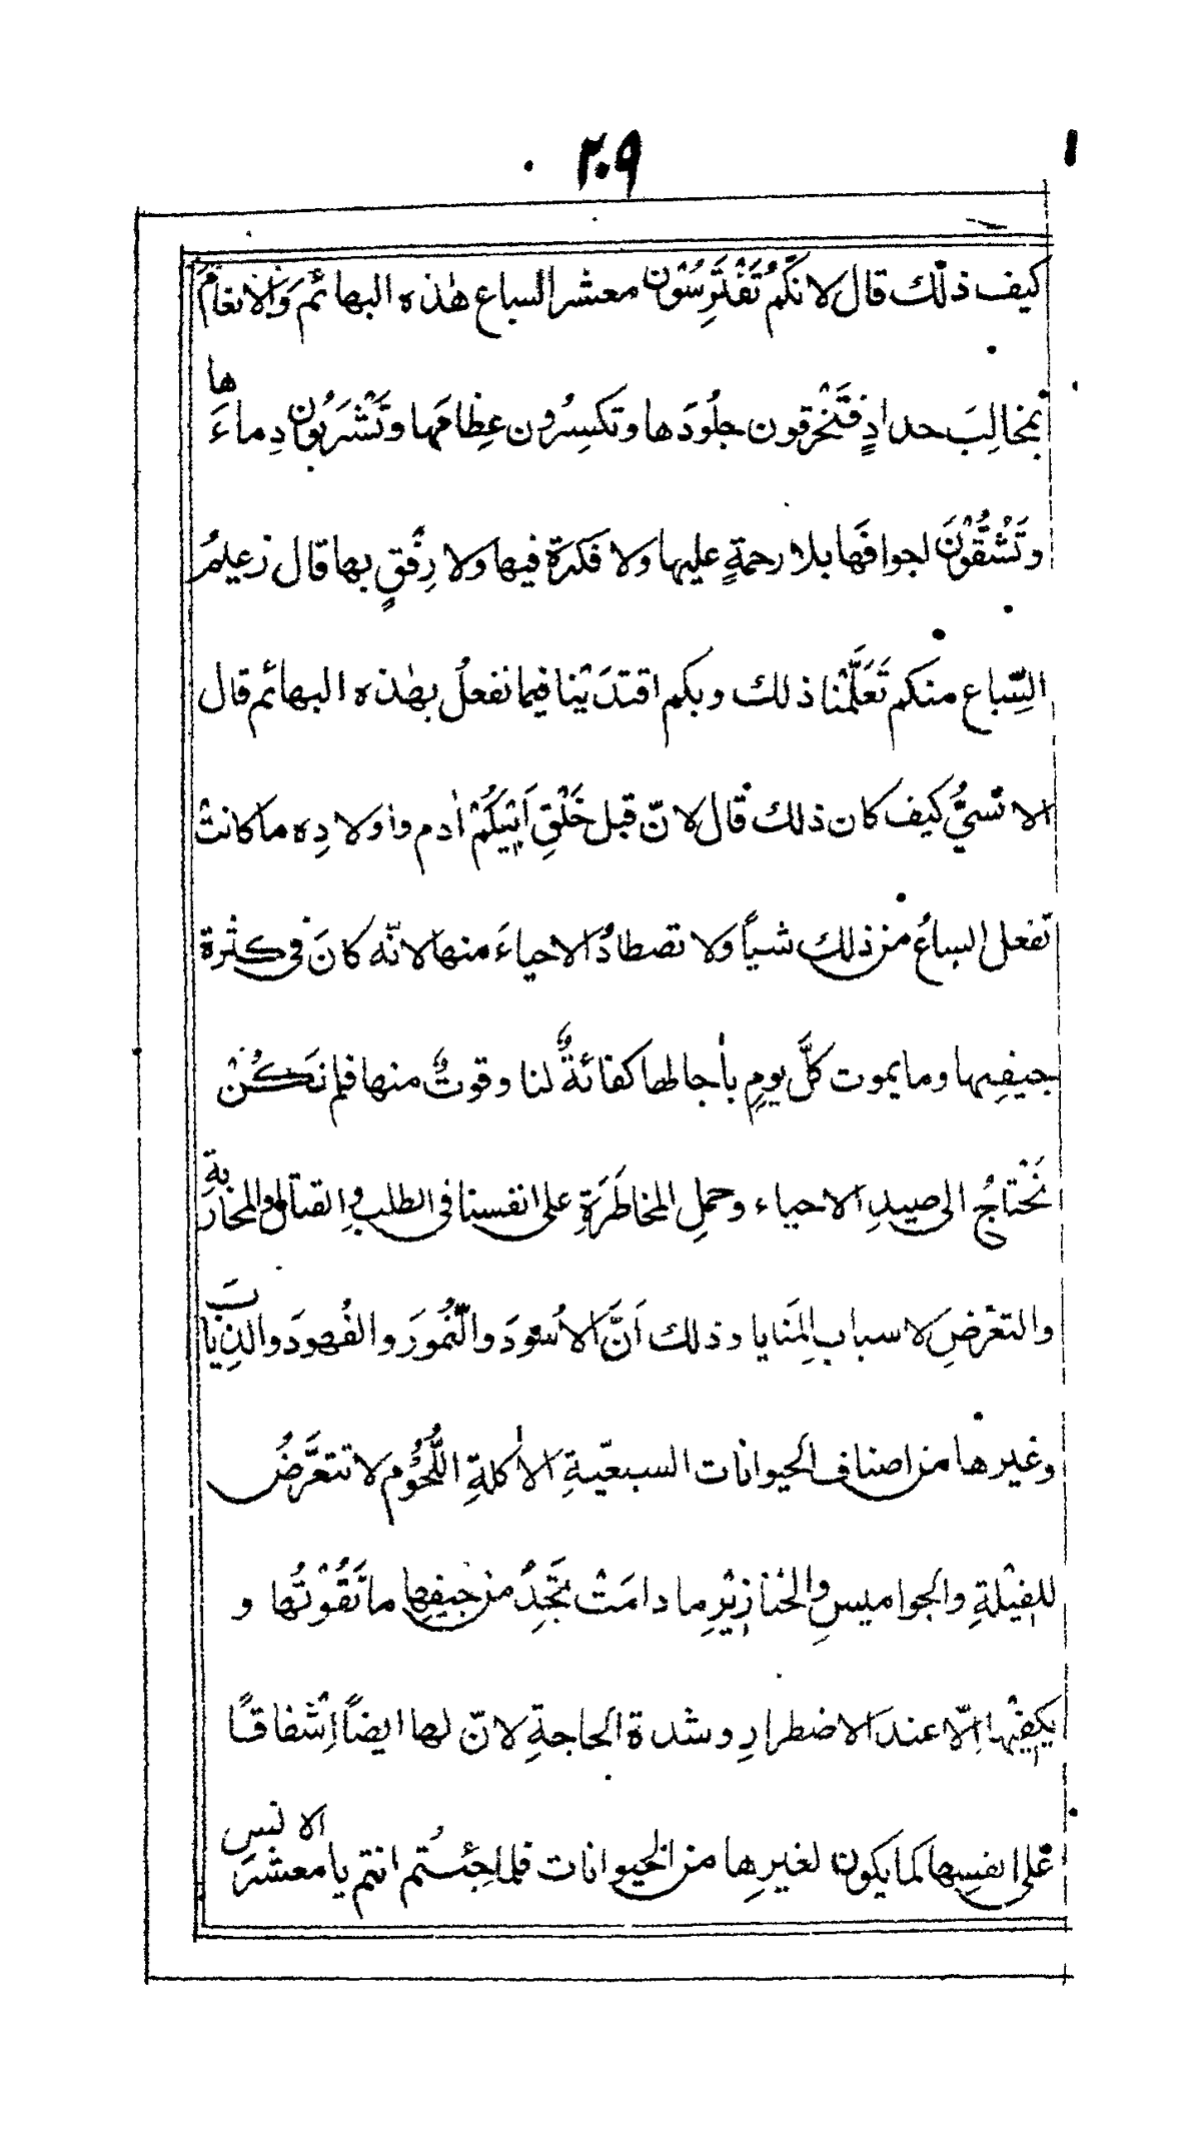 ٢٠٩
كيف ذلك قال لانّكمُ تَفْتَرِسُوْن معشر السباع هٰذه البهائمَ وَالانعامَ
بمخالِبَ حدادٍ فتَخْرقون جلُودَها وتكسِرُون عِظامَها وتَشْرَبُون دِماءَها
وتَشُقُّوْنَ لجوافَها بلا رحمةٍ عليها ولا فكرة فيها ولا رِفْقٍ بها قال زعليمُ
السِّباع منكم تَعَلَّمْنا ذلك وبكم اقتدَيْنا فيما نفعلُ بهٰذه البهائم قال
الانسيُّ كيف كان ذلك قال لانّ قبل خَلْقِ اَبِيْكُمْ اٰدم واولادِه ما كانتْ
تفعل السباعُ من ذلك شياً ولا تصطادُ الاحياءَ منها لانّه كانَ في كثرة
جيفِها وما يموت كلَّ يومٍ باٰجالها كفائةٌ لنا وقوتٌ منها فلم نَكُنْ
نَحْتاجُ الى صيدِ الاحياء وحملِ المخاطَرَةِ على انفسنا في الطلب والقتال والمحاربة
والتعرّضِ لاسباب المَنايا وذلك اَنَّ الاسُودَ والنُّمورَ والفُهودَ والذِيابَ
وغيرها من اصناف الحيوانات السبعيّةِ الاٰكلةِ اللُّحُوْم لا تتعرَّضُ
للفِيْلةِ والجواميسِ والخنازِيْرِ ما دامَتْ تَجِدُ من جيفِها ما تَقُوْتُها و
يكفِيْها اِلّا عندَ الاضطرارِ وشدة الحاجةِ لانّ لها ايضاً اِشْفاقاً
على انفسِها كما يكون لغيرِها من الحيوانات فلما جِئتُم انتم يا معشرَ الانس